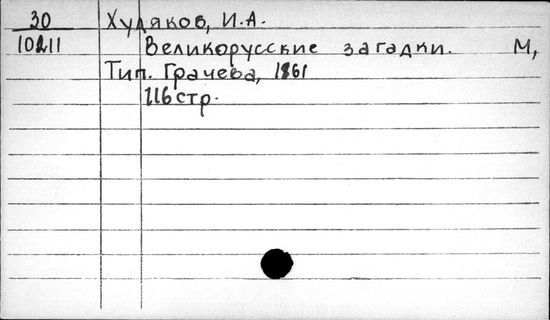 30 Худяков, И.А.
10211 Великорусские загадки. М,
Тип. Грачева, 1861
116 стр.